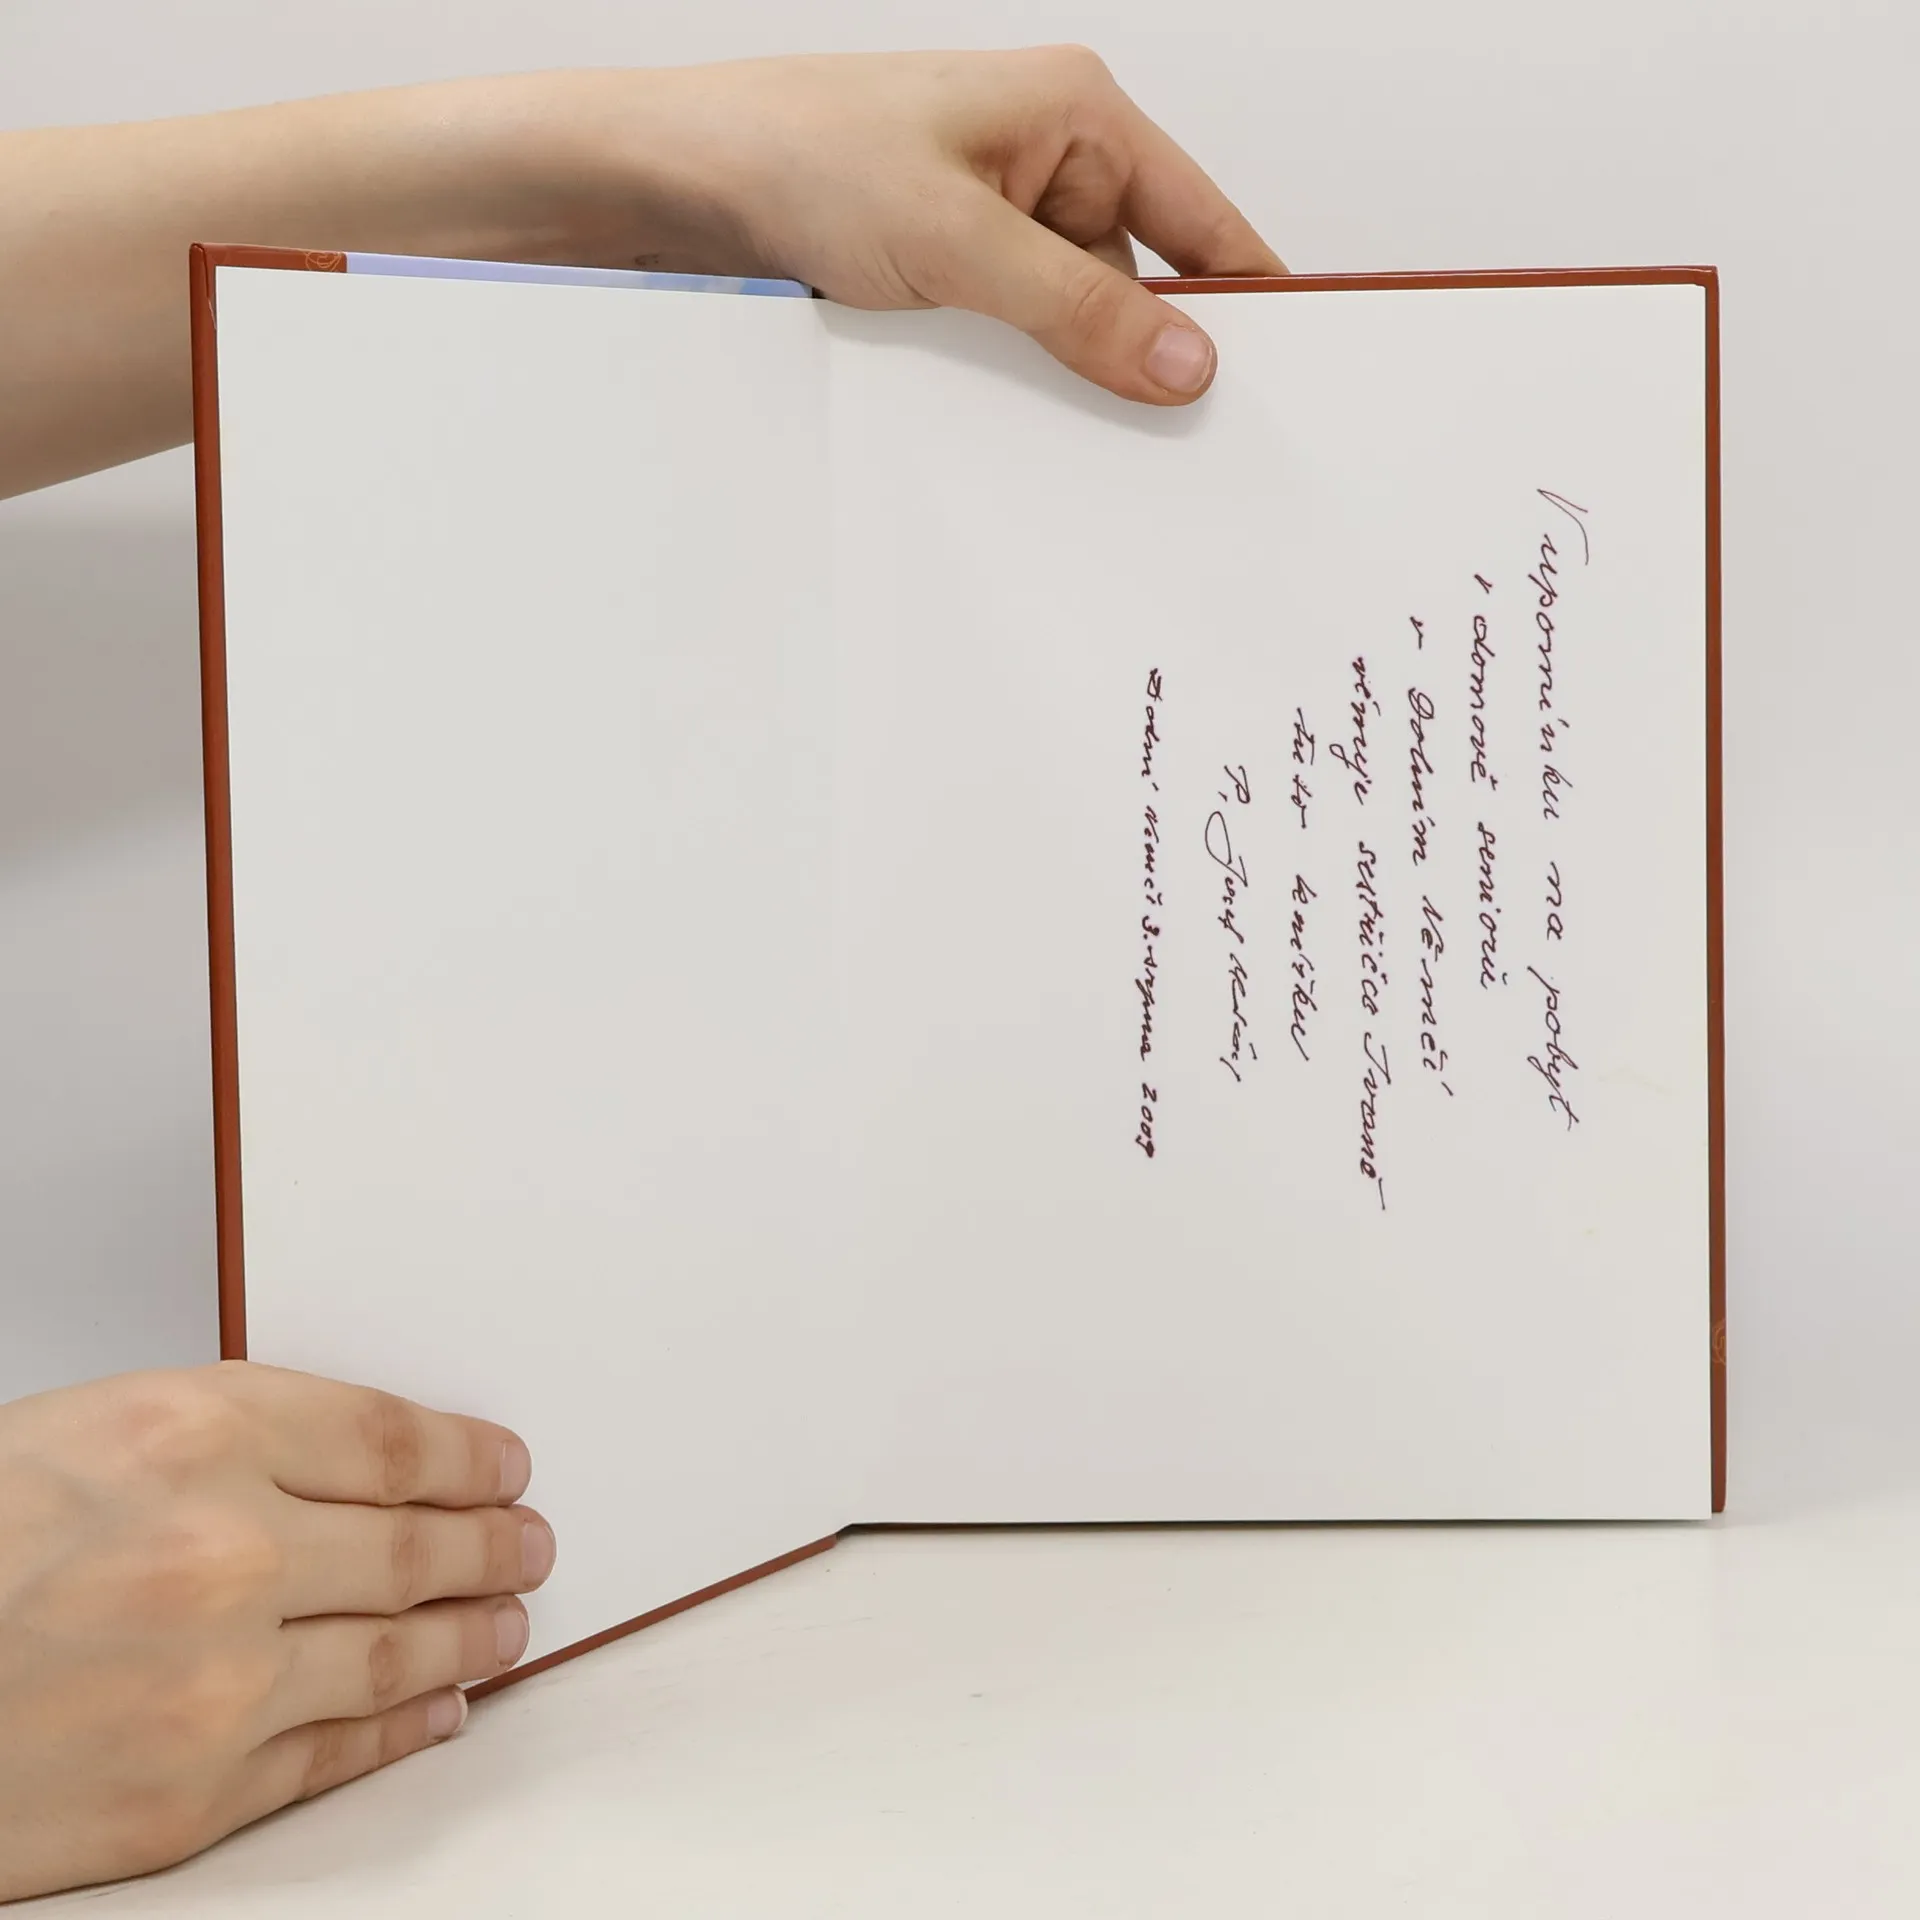 V upomínku na pobyt
v domově seniorů
v Dolním Němčí
věnuje sestřičce Ivaně
tuto knížku
P. Josef
Dolní Němčí 3. srpna 2009